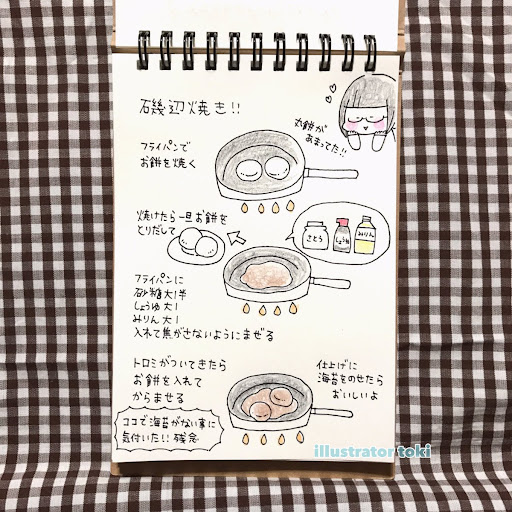 磯辺焼き!!
丸餅が
あまってた!!
フライパンで
お餅を焼く
焼けたら一旦お餅を
とりだして
さとう
しょうゆ
みりん
フライパンに
砂糖大1半
しょうゆ大1
みりん大1
入れて焦がさないようにまぜる
トロミがついてきたら
お餅を入れて
からませる
仕上げに
海苔をのせたら
おいしいよ
ココで海苔がない事に
気付いた!! 残念
illustrator toki